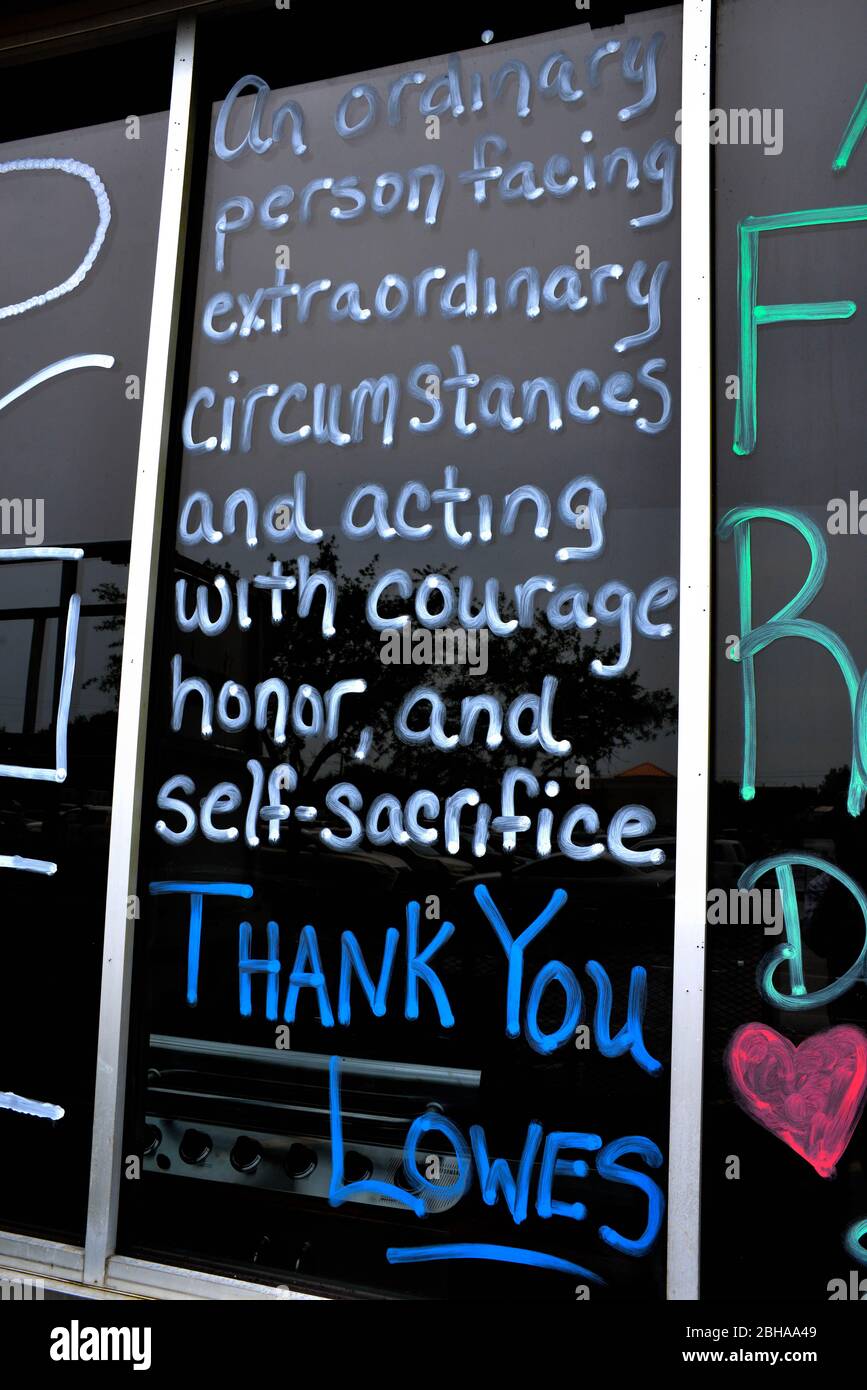 An ordinary
person facing
extraordinary
circumstances
and acting
with courage
honor, and
self-sacrifice
THANK YOU
LOWES
F
R
D
alamy
Image ID: 2BHAA49
www.alamy.com